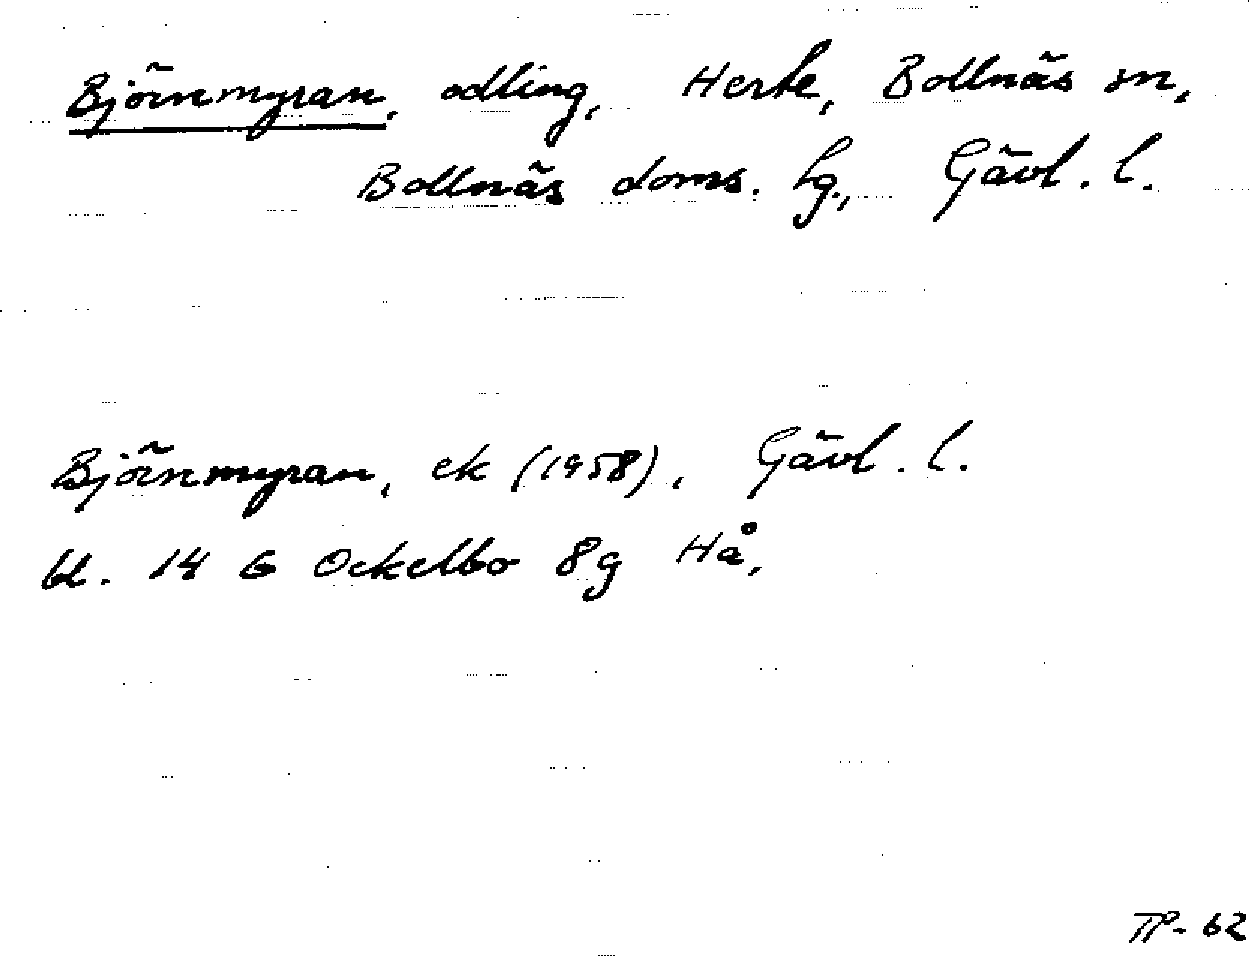 Björnmyran, odling, Herte, Bollnäs sn,
Bollnäs doms. hg., Gävl. l.
Björnmyran, ek (1958), Gävl. l.
bl. 14 G Ockelbo 8g Hå,
TP-62